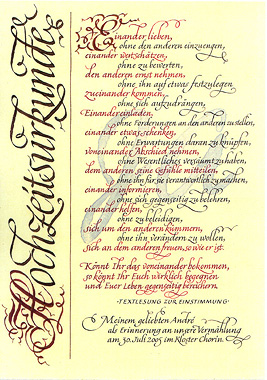 Hochzeitsurkunde
Einander lieben,
ohne den anderen einzuengen,
einander wertschätzen,
ohne zu bewerten,
den anderen ernst nehmen,
ohne ihn auf etwas festzulegen,
zueinander kommen,
ohne sich aufzudrängen,
Einander einladen,
ohne Forderungen an den anderen zu stellen,
einander etwas schenken,
ohne Erwartungen daran zu knüpfen,
voneinander Abschied nehmen,
ohne Wesentliches versäumt zu haben,
dem anderen seine Gefühle mitteilen,
ohne ihn für sie verantwortlich zu machen,
einander informieren,
ohne sich gegenseitig zu belehren,
einander helfen,
ohne zu beleidigen,
sich um den anderen kümmern,
ohne ihn verändern zu wollen,
sich an dem anderen freuen, so wie er ist.
Könnt Ihr das voneinander bekommen,
so könnt Ihr Euch wirklich begegnen
und Euer Leben gegenseitig bereichern.
·TEXTLESUNG ZUR EINSTIMMUNG·
Meinem geliebten André
als Erinnerung an unsere Vermählung
am 30. Juli 2005 im Kloster Chorin.